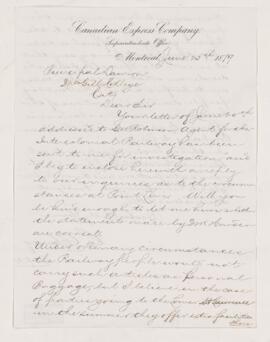 Canadian Express Company,
Superintendents Office,
Montreal, June 25th 1879
Principal Dawson
McGill College
City
Dear Sir
Your letter of June 20th
addressed to Agent for the
Intercolonial Railway has been
sent to me for investigation and
I beg to enclose herewith a reply
to our inquiries as to the circum
stances at With you
be kind enough to let me know whether
the statements made by
are correct.
Under ordinary circumstances
the Railway people would not
carry such articles as Personal
Baggage, but I believe in the case
of parties going to the Lower St Lawrence
in the summer they offer extra facilities